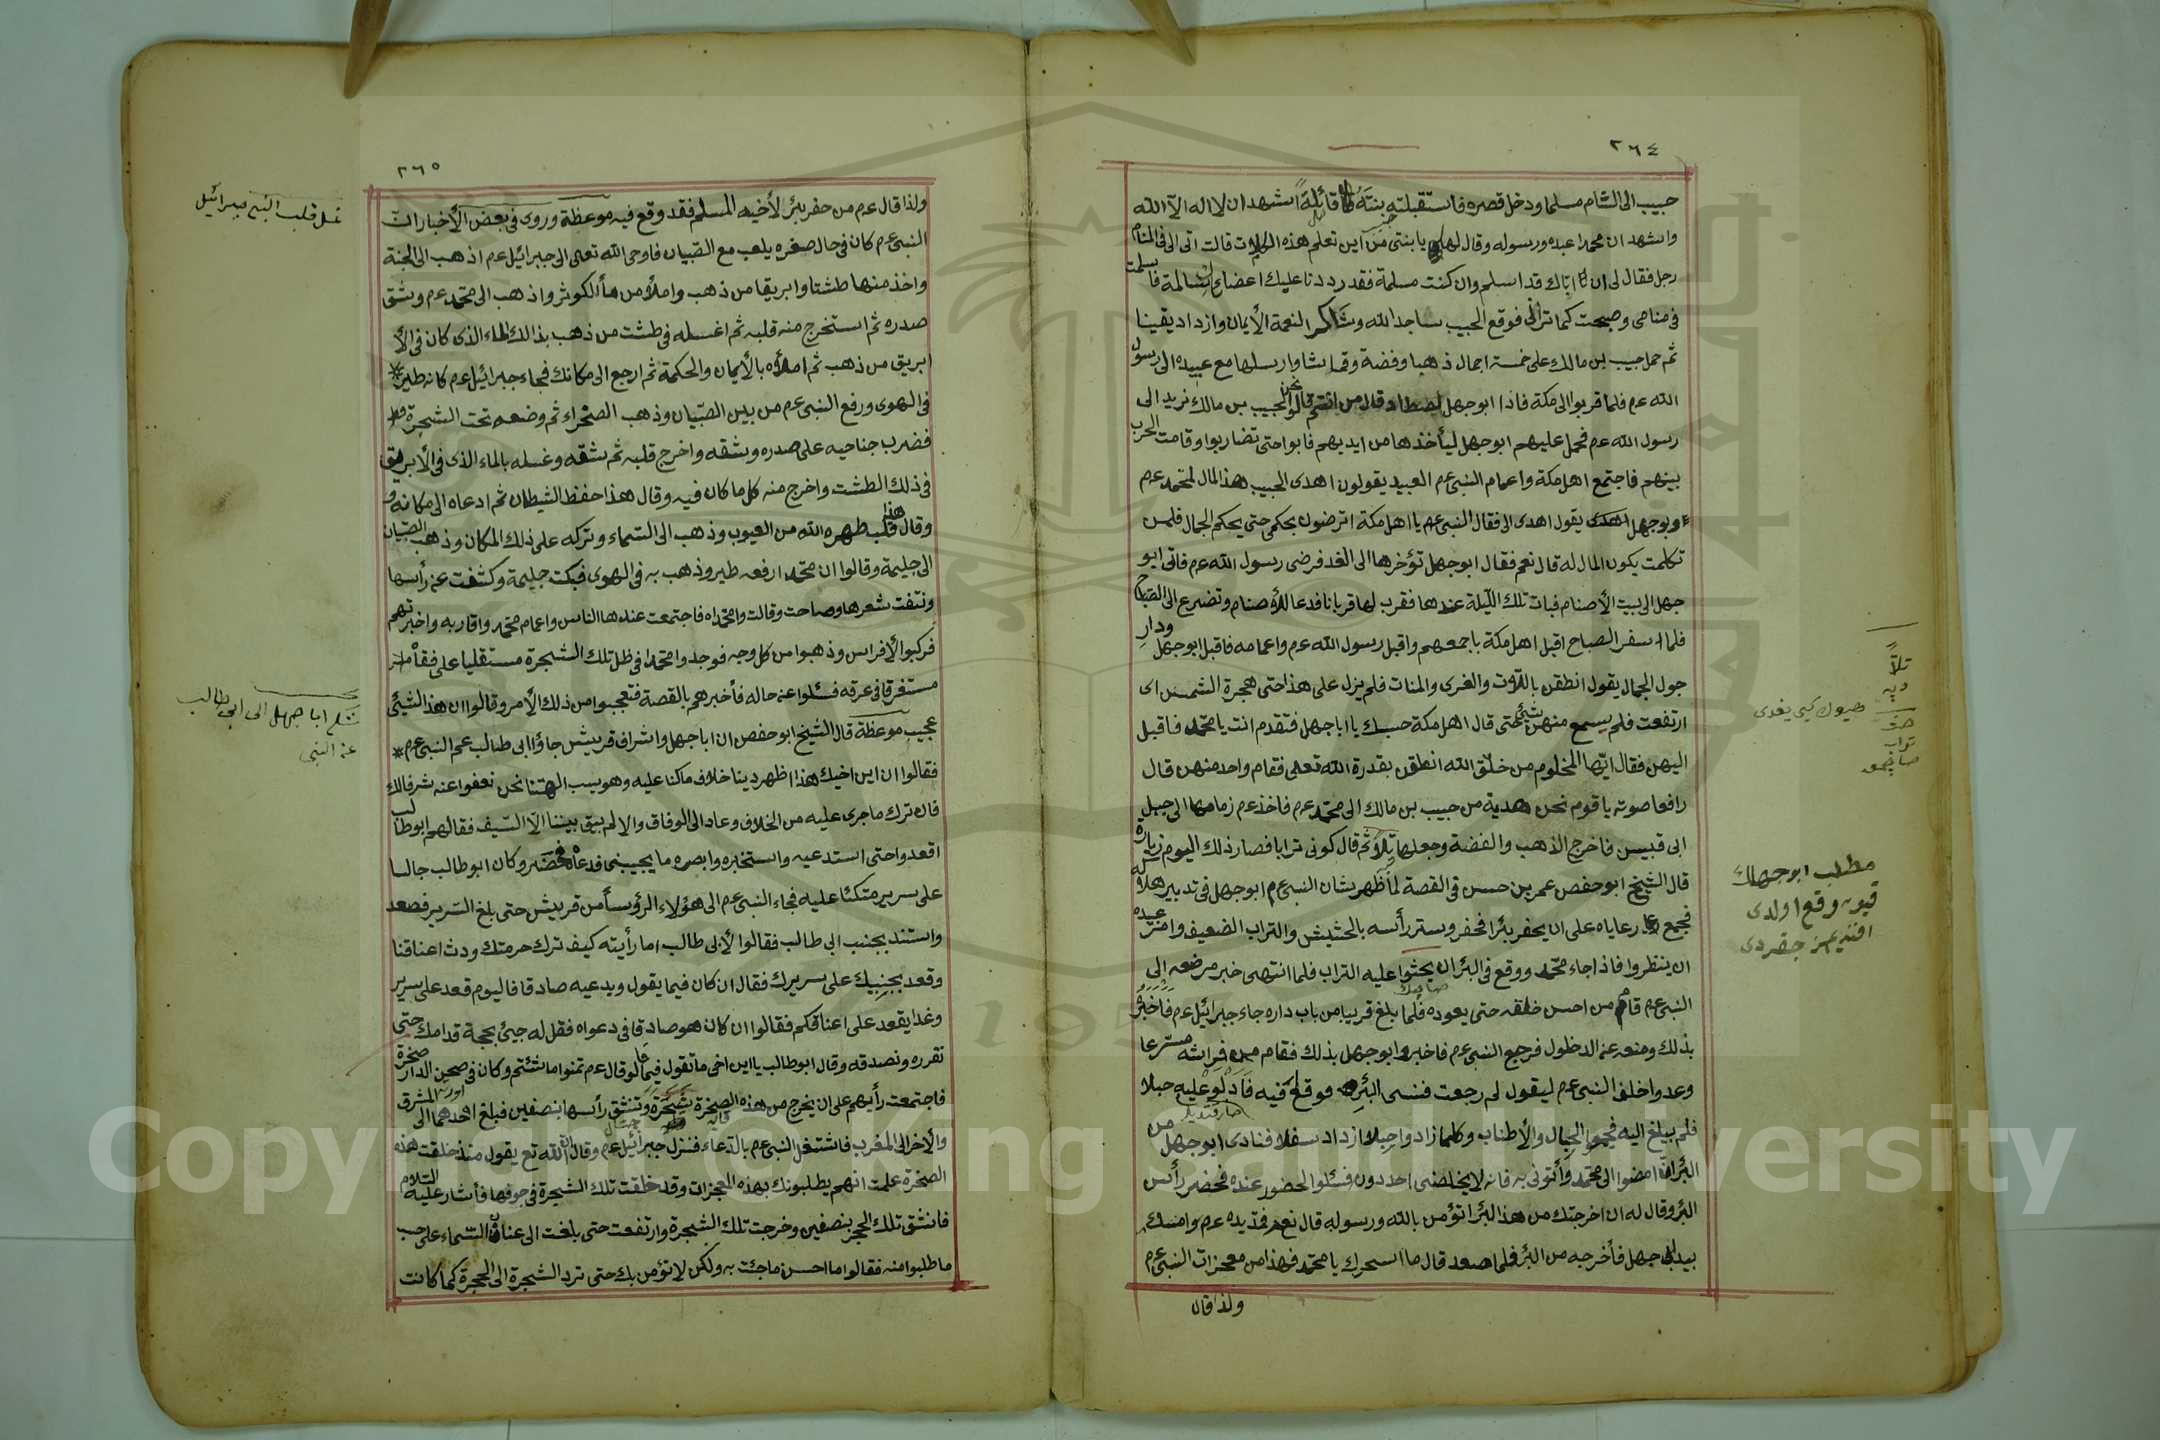 ٢٦٤
حبيب الى الشام مسلما ودخل قصره فاستقبلته بنته قائلة اشهد ان لا اله الا الله
واشهد ان محمدا عبده ورسوله وقال لها يا بنتى من اين تعلم هذه الكلات قالت اتى الى فى المنام
رجل فقال لى ان اباك قد اسلم وان كنت مسلمة فقد رددنا عليك اعضائك سالمة فاسلمت
فى منامى وصبحت كما ترانى فوقع الحبيب ساجدا لله وشاكرا لنعمة الأيمان وازداد يقينا
ثم حمل حبيب بن مالك على خمسة اجمال ذهبا وفضة وقماشا وارسلها مع عبيده الى رسول
الله عم فلما قربوا الى مكة فاذا ابوجهل قال من انتم قالوا نحن لحبيب بن مالك نريد الى
رسول الله عم فحمل عليهم ابوجهل ليأخذها من ايديهم فابوا حتى تضاربوا وقامت الحرب
بينهم فاجتمع اهل مكة واعمام النبى عم العبيد يقولون اهدى الحبيب هذا المال لمحمد عم
وبوجهل يقول اهدى الى فقال النبى عم يا اهل مكة اترضون بحكمى حتى يحكم الجمال فلمن
تكلمت يكون المال له قال نعم فقال ابوجهل تؤخرها الى الغد فرضى رسول الله عم فاتى ابو
جهل الى بيت الأصنام فبات تلك الليلة عندها فقرب لها قربانا فدعا للأصنام وتضرع الى الصباح
فلما اسفر الصباح اقبل اهل مكة باجمعهم واقبل رسول الله عم واعمامه فاقبل ابوجهل ودار
حول الجمال يقول انطقن باللات والغرى والمنات فلم يزل على هذا حتى هجرة الشمس اى
ارتفعت فلم يسمع منهن شئ حتى قال اهل مكة حسبك يا ابا جهل فتقدم انت يا محمد فاقبل
اليهن فقال ايها المخلوم من خلق الله انطقن بقدرة الله تعلى فقام واحد منهن قال
رافعا صوته يا قوم نحن هدية من حبيب بن مالك الى محمد عم فاخذ عم زمامها الى جبل
ابى قبيس فاخرج الذهب والفضة وجعلها تلا ثم قال كونى ترابا فصار ذلك اليوم زيارة
قال الشيخ ابوحفص عمر بن حسن فى القصة لما ظهر شان النبى عم ابوجهل فى تدبير هلاكه
فجمع رعاياه على ان يحفر بئرا فحفر وستر رأسه بالحشيش والتراب الضعيف وامر عبيده
ان ينظروا فاذا جاء محمد ووقع فى البئر ان يحثوا عليه التراب فلما انتهى خبر مرضه الى
النبى عم قام من احسن خلقه حتى يعوده فلما بلغ قريبا من باب داره جاء جبرائيل عم فاخبر
بذلك ومنعه عن الدخلول فرجع النبى عم فاخبر ابوجهل بذلك فقام من فراشه مسترعا
وعدوا خلف النبى عم ليقول لم رجعت فنسى البئر فوقع فيه فادلو عليه حبلا
فلم يبلغ اليه فجمعوا الحبال والأطناب وكلما زادوا حبلا ازداد سفلا فنادى ابوجهل من
البئر ان امضوا الى محمد وأتونى به فانه لا يخلصنى احد دون فسئلوا الحضور عنده فحضر رأس
البئر وقال له ان اخرجتك من هذا البئر اتؤمن بالله ورسوله قال نعم فمد يده عم وامسك
بيد ابى جهل فأخرجه من البئر فلما صعد قال ما اسحرك يا محمد فهذا من معجزات النبى عم
ولذا قال
تلاً
دپه
تراب
مطلب ابوجهلك
قيويه وقع اولدى
افنديمز چقردى
٢٦٥
ولذا قال عم من حفر بئرا لأخيه المسلم فقد وقع فيه موعظة وروى فى بعض الأخبار ان
النبى عم كان فى حال صغره يلعب مع الصبيان فاوحى الله تعلى الى جبرائيل عم اذهب الى الجنة
واخذ منها طشتا وابريقا من ذهب واملأ من ماء الكوثر واذهب الى محمد عم وشق
صدره ثم استخرج منه قلبه ثم اغسله فى طشت من ذهب بذالك الماء الذى كان فى الأ
ابريق من ذهب ثم املأه بالأيمان والحكمة ثم ارجع الى مكانك فجاء جبرائيل عم كانه طير
فى الهوى ورفع النبى عم من بين الصبيان وذهب الصحراء ثم وضعه تحت الشجرة
فضرب جناحيه على صدره وشقه واخرج قلبه ثم شقه وغسله بالماء الذى فى الأبريق
فى ذلك الطشت واخرج منه كل ما كان فيه وقال هذا حفظ الشيطان ثم ادعاه الى مكانه و
وقال هذا قلب طهره الله من العيوب وذهب الى السماء وتركه على ذلك المكان وذهب الصبيان
الى حليمة وقالوا ان محمدا رفعه طير وذهب به فى الهوى فبكت حليمة وكشفت عن رأسها
ونتفت شعرها وصاحت وقالت وامحمداه فاجتمعت عندها الناس واعمام محمد واقاربه واخبرتهم
فركبوا الأفراس وذهبوا من كل وجه فوجدوا محمدا فى ظل تلك الشجرة مستقليا على فقاه
مستغرقا فى عرقه فسئلوا عن حاله فأخبرهم بالقصة فتعجبوا من ذلك الأمر وقالوا ان هذا لشيئ
عجيب موعظة قال الشيخ ابوحفص ان اباجهل واشراف قريش جاؤا ابى طالب عم النبى عم
فقالوا ان ابن اخيك هذا اظهر دينا خلاف ما كنا عليه وهو يسب الهتنا نحن نعفوا عنه شرفا لك
فان ترك ما جرى عليه من الخلاف وعاد الى الوفاق والا لم يبق بيننا الا السيف فقال لهم ابوطالب
اقعدوا حتى استدعيه واستخبره وابصره ما يجيبنى فدعاه فحضر وكان ابوطالب جالسا
على سرير متكئا عليه فجاء النبى عم الى هؤلاء الرؤساء من قريش حتى بلغ السرير فصعد
واستند بجنب ابى طالب فقالوا لأبى طالب اما رأيته كيف ترك حرمتك ودث اعناقنا
وقعد بجنبك على سريرك فقال ان كان فيما يقول ويدعيه صادقا فاليوم قعد على سرير
وغدا يقعد على اعناقكم فقالوا ان كان هو صادقا فى دعواه فقل له جيئ بحجة قدامك حتى
نقرره ونصدقه وقال ابوطالب يا ابن اخى ما تقول فيما قالو قال عم تمنوا ما شئتم وكان فى صحن الدار صخرة
فاجتمعت رأيهم على ان يخرج من هذه الصخرة شجرة وتنشق رأسها بنصفين فبلغ احدهما الى المشرق
والآخر الى المغرب فاشتغل النبى عم بالدعاء فنزل جبرائيل عم وقال ان الله تع يقول منذ خلقت هذه
الصخرة علمت انهم يطلبونك بهذه المعجزات وقد خلقت تلك الشجرة فى جوفها فأشار عليه السلام
فانشق تلك الحجر بنصفين وخرجت تلك الشجرة وارتفعت حتى بلغت الى عنان السماء على حب
ما طلبوا منه فقالوا ما احسن ما جئت به ولكن لا نؤمن بك حتى ترد الشجرة الى الحجرة كما كانت
غسل قلب النبى جبرائيل
ابا جهل الى ابى طالب
عن النبى
Copyright © King Saud University